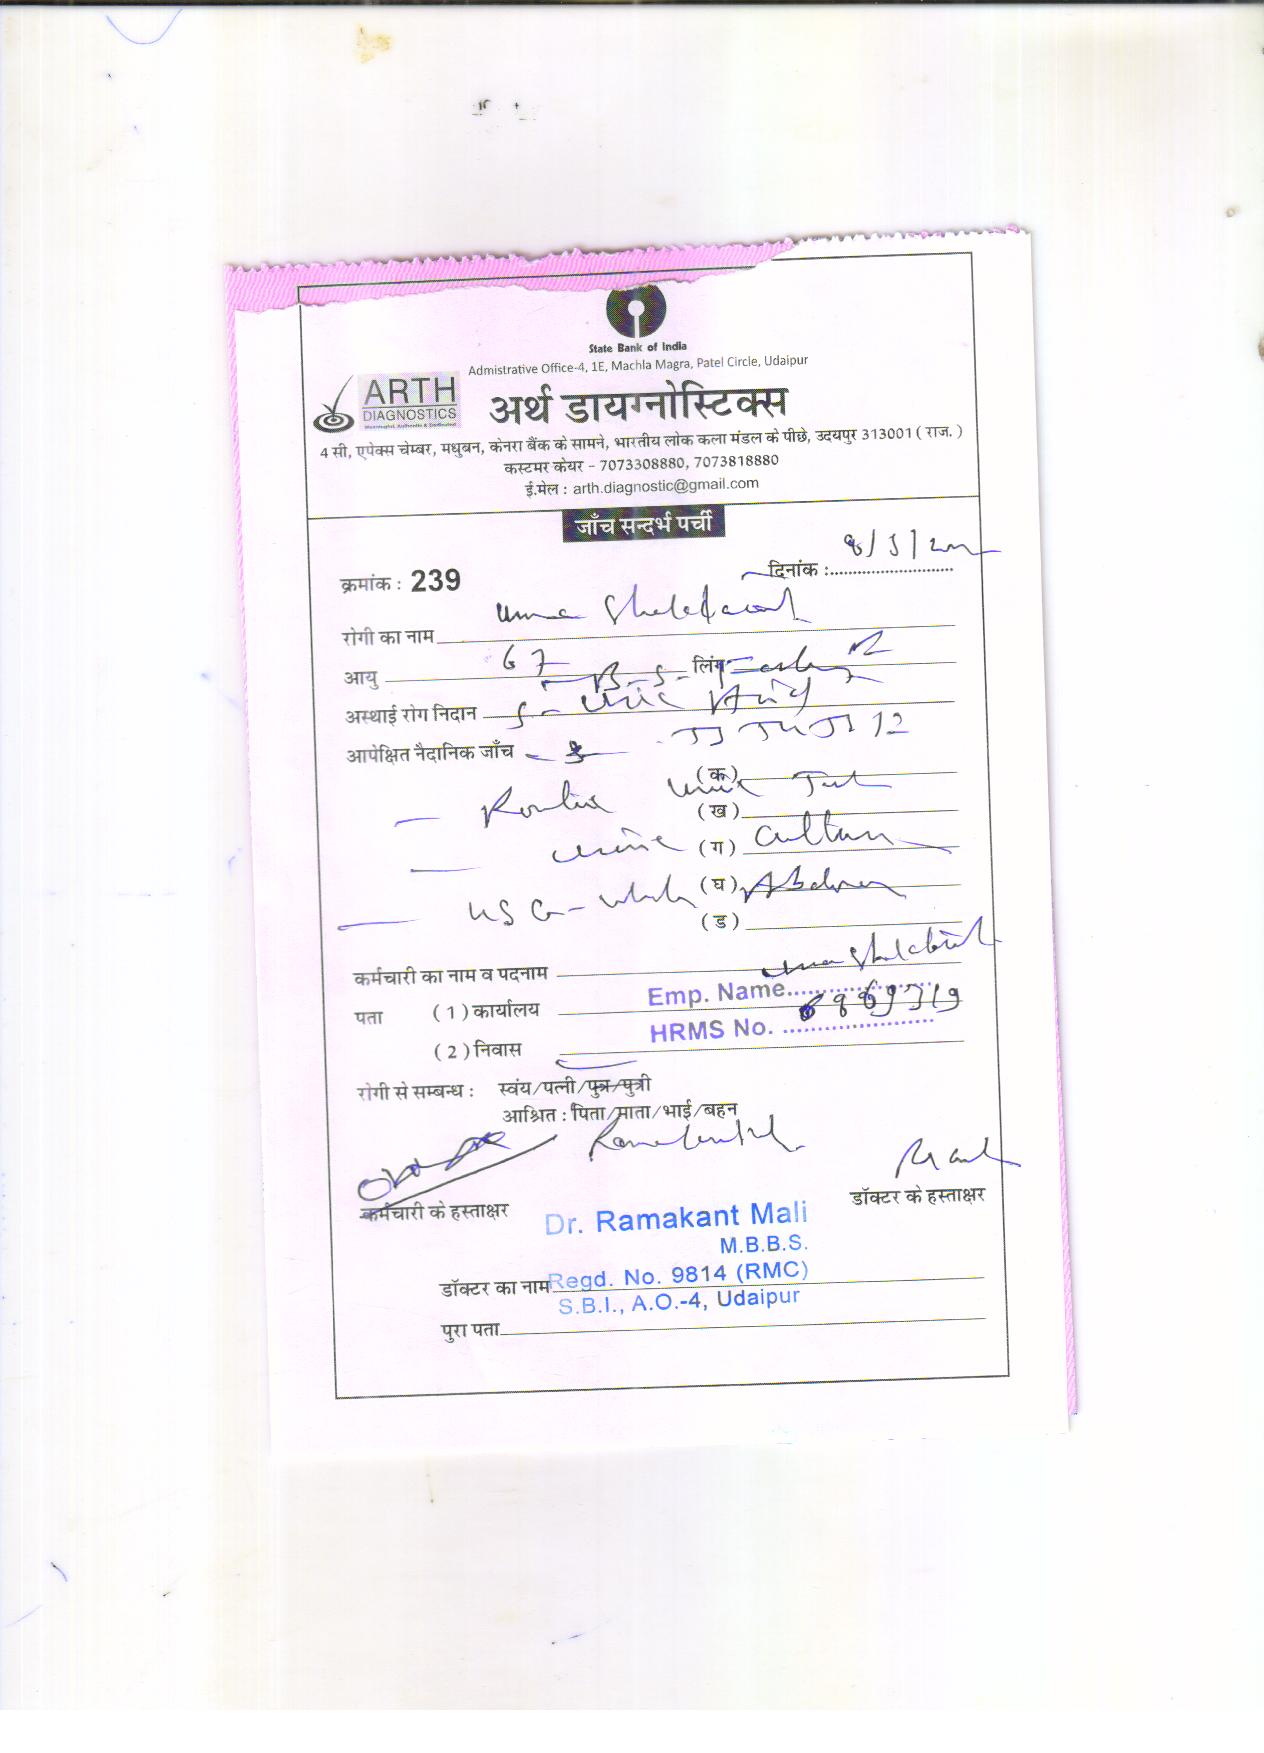 State Bank of India
Admistrative Office-4, 1E, Machla Magra, Patel Circle, Udaipur
ARTH
DIAGNOSTICS
अर्थ डायग्नोस्टिक्स
4 सी, एपेक्स चेम्बर, मधुबन, केनरा बैंक के सामने, भारतीय लोक कला मंडल के पीछे, उदयपुर 313001 ( राज. )
कस्टमर केयर - 7073308880, 7073818880
ई.मेल : arth.diagnostic@gmail.com
जाँच सन्दर्भ पर्ची
क्रमांक : 239
दिनांक :
रोगी का नाम Uma
आयु 67 लिंग
B-S- Fasting
अस्थाई रोग निदान S- Uric Acid
आपेक्षित नैदानिक जाँच
(क)
Routine Urine Test
(ख)
Urine (ग) Culture
USG - Whole (घ) Abdomen
(ड)
कर्मचारी का नाम व पदनाम Uma
Emp. Name
पता (1) कार्यालय
HRMS No.
(2) निवास
रोगी से सम्बन्ध : स्वंय/पत्नी/पुत्र/पुत्री
आश्रित : पिता/माता/भाई/बहन
कर्मचारी के हस्ताक्षर
डॉक्टर के हस्ताक्षर
Dr. Ramakant Mali
M.B.B.S.
डॉक्टर का नाम Regd. No. 9814 (RMC)
S.B.I., A.O.-4, Udaipur
पुरा पता